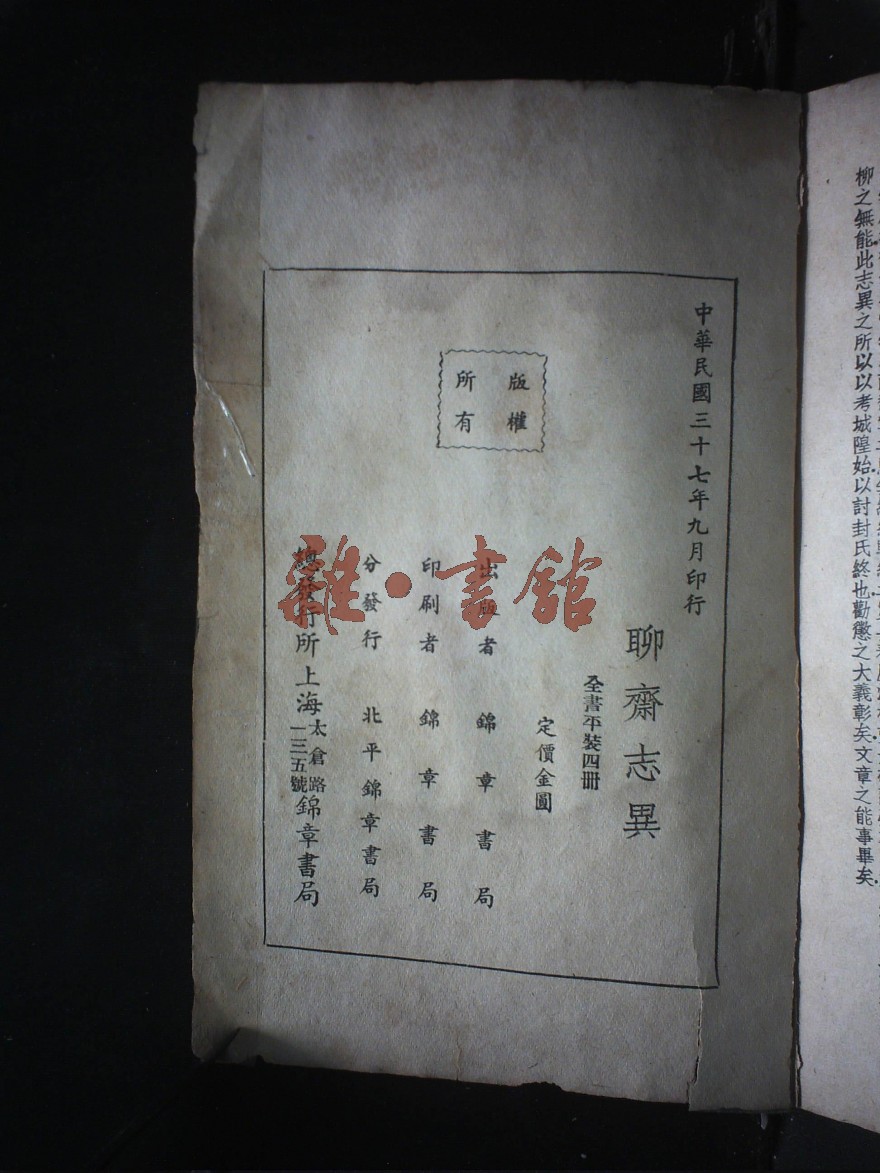 柳之無能此志異之所以以考城隍始以討封氏終也勸懲之大義彰矣文章之能事畢矣
中華民國三十七年九月印行
聊齋志異
全書平裝四冊
定價金圓
版權
所有
出版者 錦章書局
印刷者 錦章書局
分發行 北平錦章書局
總發行所 上海太倉路一三五號錦章書局
雜·書館